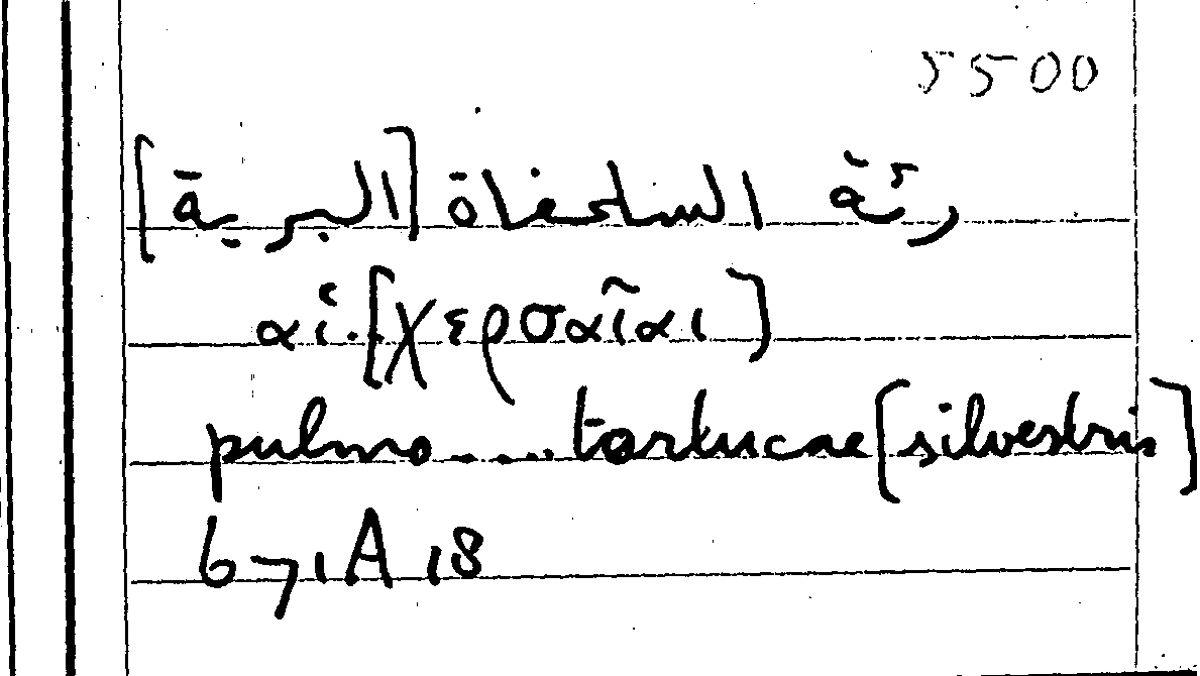 5500
رئة السلحفاة [البرية]
αἱ . [χερσαῖαι]
pulmo .... tortucae [silvestris]
671 A 18